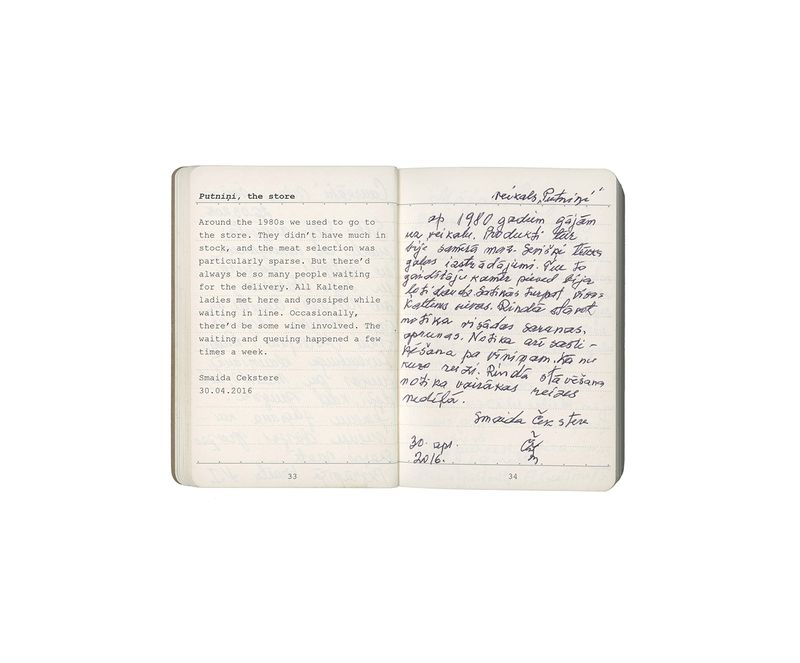 Putniņi, the store
Around the 1980s we used to go to
the store. They didn't have much in
stock, and the meat selection was
particularly sparse. But there'd
always be so many people waiting
for the delivery. All Kaltene
ladies met here and gossiped while
waiting in line. Occasionally,
there'd be some wine involved. The
waiting and queuing happened a few
times a week.
Smaida Cekstere
30.04.2016
33
veikals „Putniņi"
ap 1980 gadiem gājām
uz veikalu. Produkti
bija maz.
gaļas izstrādājumi.
gaidītāju kamēr pieved bija
ļoti daudz. turpat visas
Kaltenes sievas. Rindā stāvot
notika visādas sarunas,
aprunas. Notika arī
pa vīniņam.
reizi. Rindā stāvēšana
notika vairākas reizes
nedēļā.
Smaida Čekstere
30. apr.
2016.
34